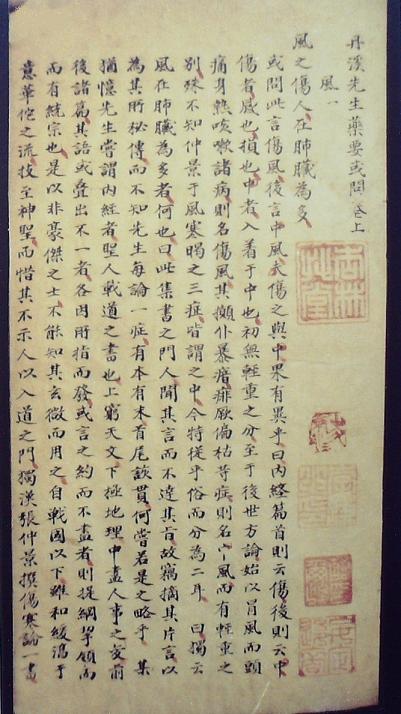 丹溪先生藥要或問卷上
風一
風之傷人在肺臟為多
或問此言傷風後言中風夫傷之與中果有異乎曰內經篇首則云傷後則云中
傷者感也損也中者入着于中也初無輕重之分至于後世方論始以冒風而頭
痛身熱咳嗽諸病則名傷風其㒹仆暴瘖痱厥偏枯等疾則名中風而有輕重之
別殊不知仲景于風寒暍之三症皆謂之中今特從乎俗而分為二耳 曰獨云
風在肺臟為多者何也曰此集書之門人聞其言而不達其旨故竊摘其片言以
為其所秘傳而不知先生每論一症有本有末首尾該貫何嘗若是之略乎 某
猶憶先生嘗謂內經者聖人戰道之書也上窮天文下極地理中盡人事之變前
後諸篇其語或疊出不一者各因所指而發或言之約而不盡者則提綱挈領而
而有統宗也是以非豪傑之士不能知其玄微而用之自戰國以下雖和緩鴻于
意華佗之流技至神聖而惜其不示人以入道之門獨漢張仲景撰傷寒論一書